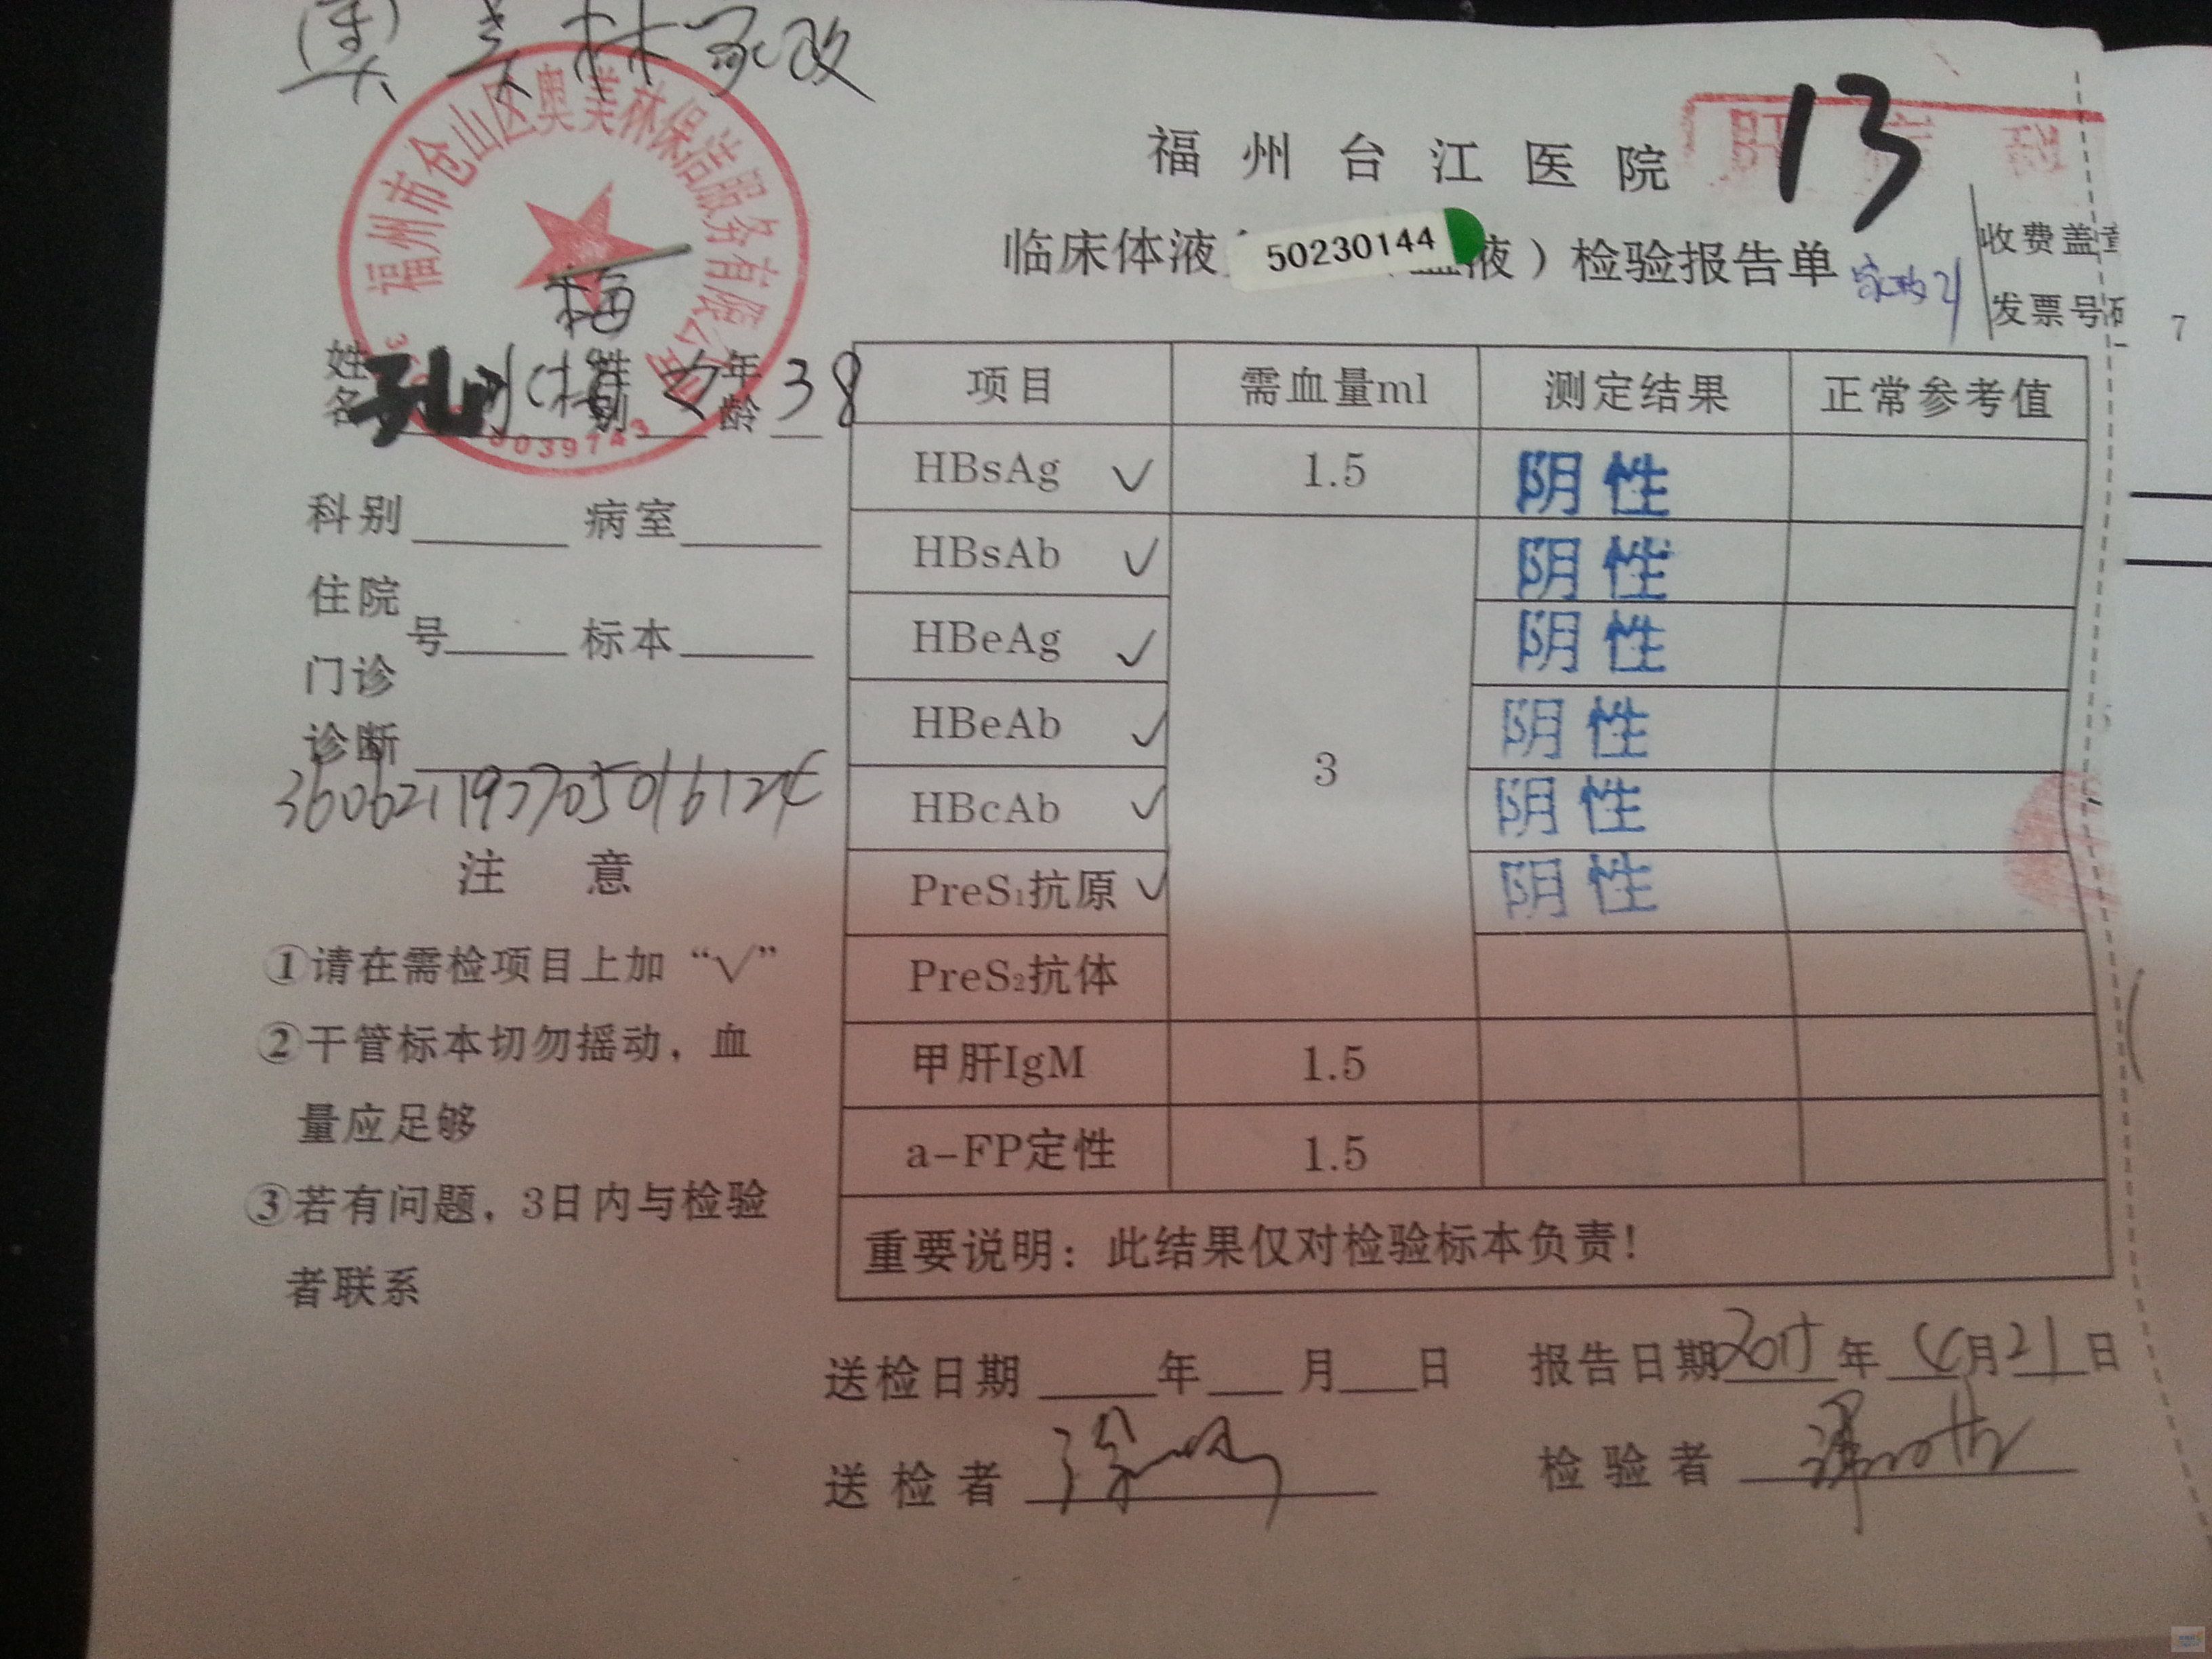 奥美林家政
福州市仓山区奥美林保洁服务有限公司
13
福州台江医院
肝 科
临床体液 50230144 液）检验报告单
收费盖章
发票号码
7
梅
姓名 孔 性别 女 年龄 38
科别 病室
住院
号 标本
门诊
诊断
注 意
①请在需检项目上加“√”
②干管标本切勿摇动，血
量应足够
③若有问题，3日内与检验
者联系
项目 需血量ml 测定结果 正常参考值
HBsAg √ 1.5 阴性
HBsAb √ 阴性
HBeAg √ 阴性
HBeAb √ 阴性
3
HBcAb √ 阴性
PreS₁抗原 √ 阴性
PreS₂抗体
甲肝IgM 1.5
a-FP定性 1.5
重要说明：此结果仅对检验标本负责！
送检日期 年 月 日 报告日期 2015 年 4 月 21 日
送检者 检验者